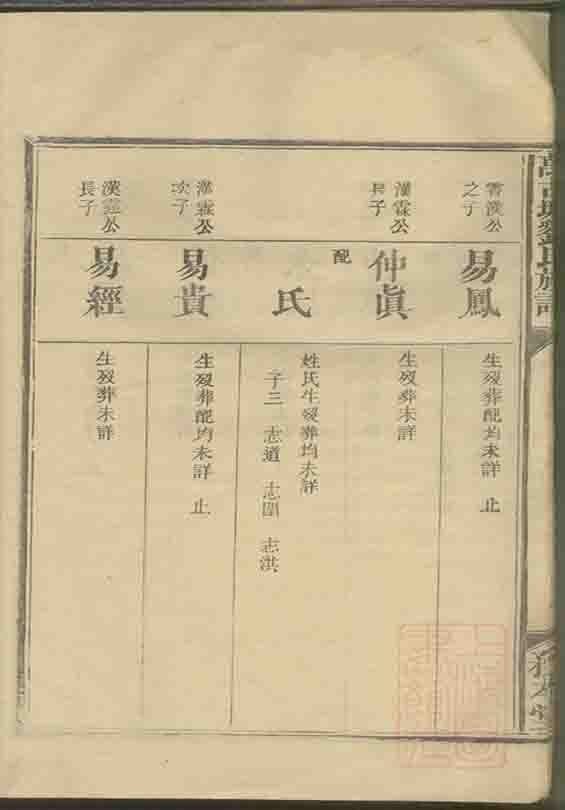 雲漢公
之子
易鳳
生歿葬配均未詳 止
漢霖公
長子
仲眞
生歿葬未詳
配
氏
姓氏生歿葬均未詳
子三 志道 志圍 志洪
漢霖公
次子
易貴
生歿葬配均未詳 止
漢雲公
長子
易經
生歿葬未詳